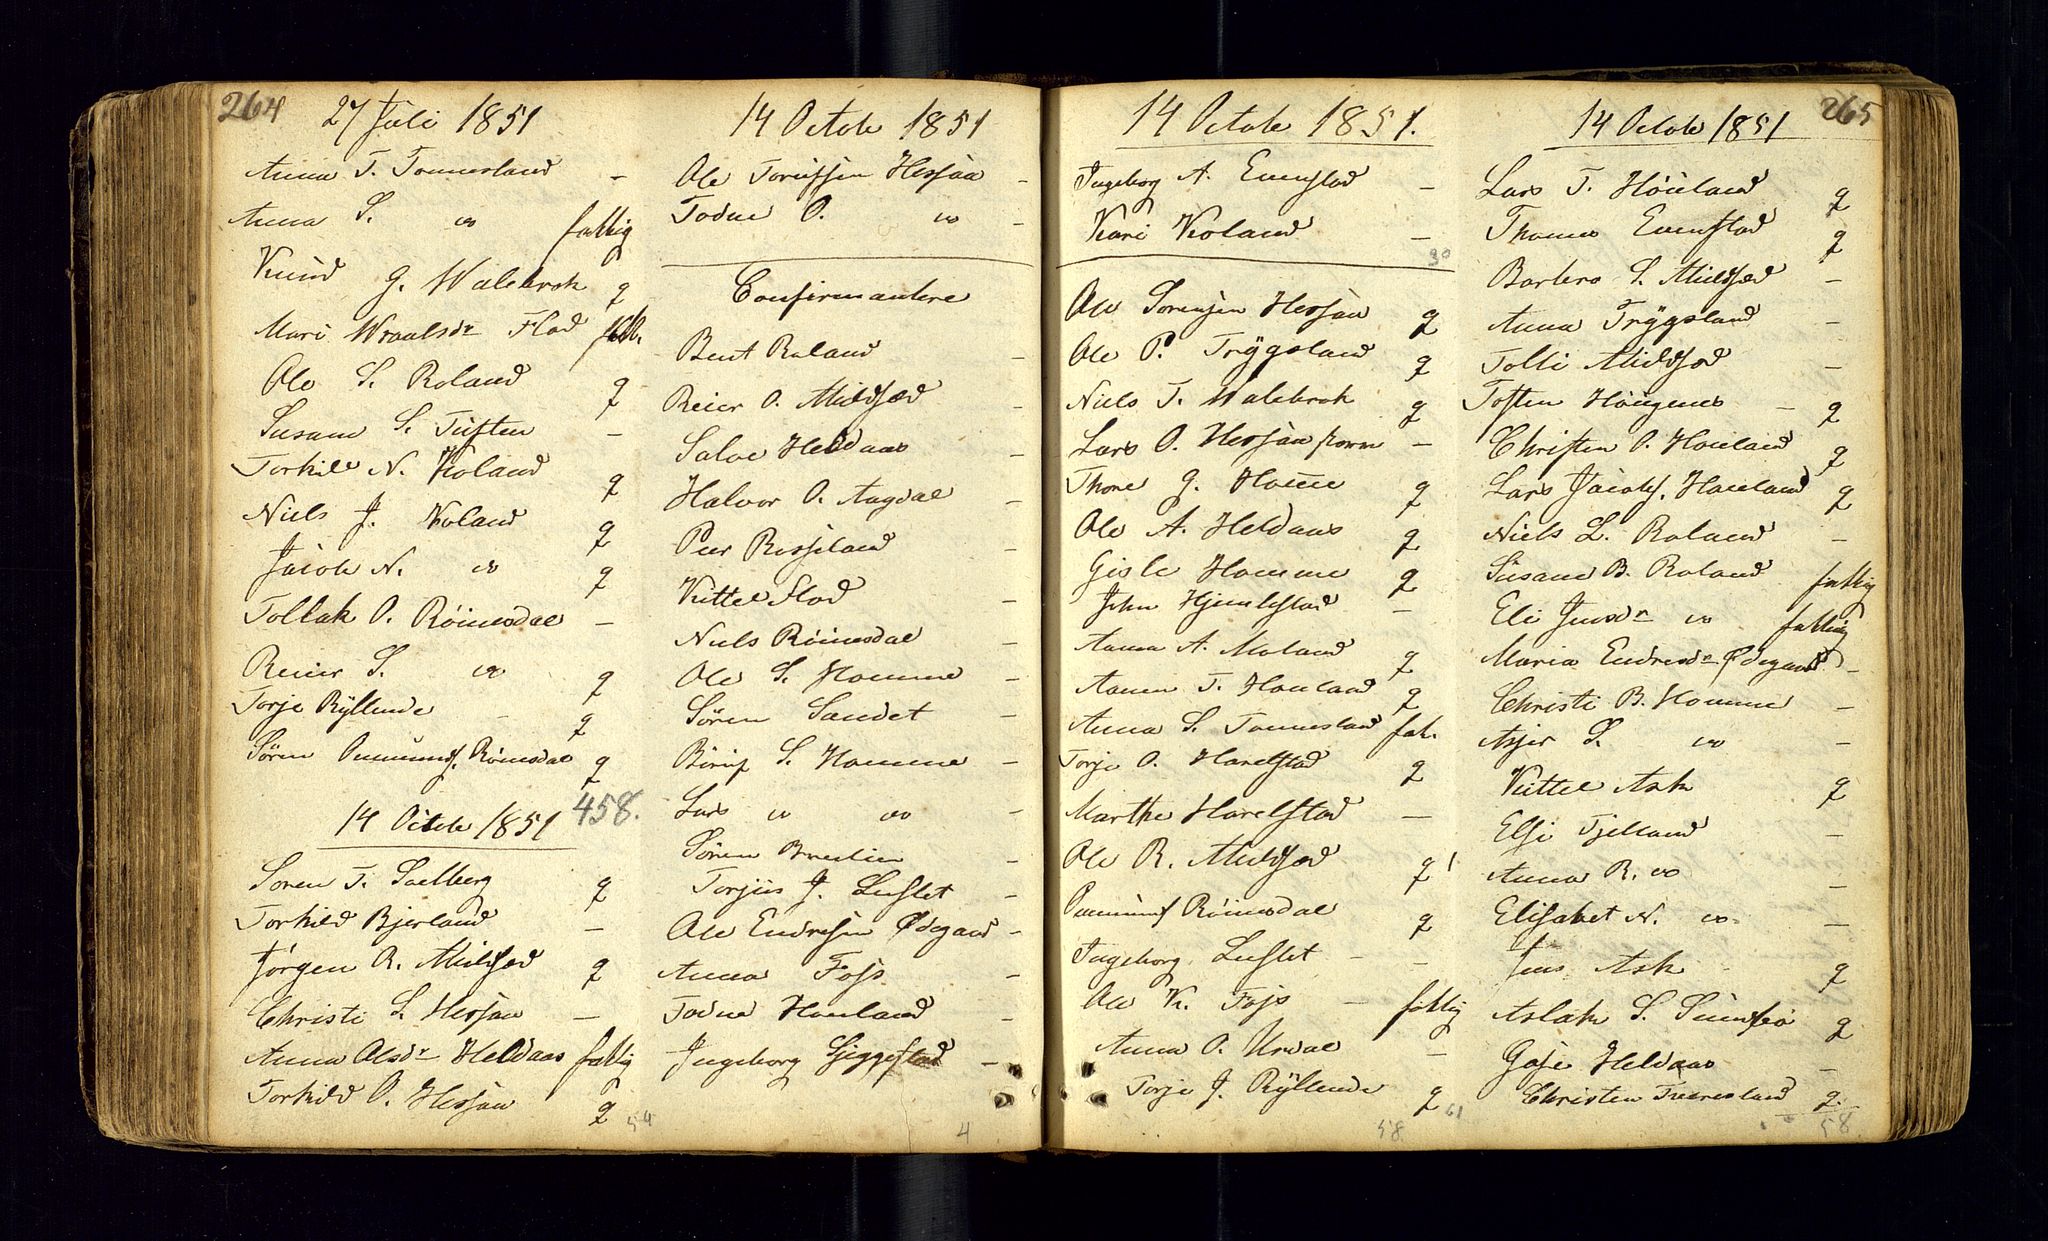 264
27 Juli 1851
Anna T. Tonnesland –
Anna S. " fattig
Knud G. Walebrok g
Mari Wraalsdr Flad
Ole S. Roland g
Susann S. Tuften –
Torkild N. Roland g
Niels J. Noland g
Jacob N. " g
Tollak O. Röinesdal –
Reier S. " g
Torje Ryllende – g
Sören Ommunds. Röinesdal g
458.
14 Octob 1851
Sören T. Solberg g
Torkild Bjerland –
Jörgen R. Mildsød g
Christi S. Hersjaa –
Anna Olsdr Heldaas fattig
Torkild O. Hersjaa g
54
14 Octob 1851
Ole Hersjaa –
Todne O. " –
Confirmantere
Bent Roland –
Reier O. Mildsød –
Salve Heldaas –
Halvor O. Augdal –
Peer –
Kittel Flod –
Niels Röinesdal –
Ole S. Homme –
Sören Sandet –
Böruf S. Homme –
Lars " " –
Sören –
Torjus J. Luslet –
Ole Endresen Ødegaard –
Anna Fojs –
Todne Houland –
Ingeborg –
4
14 Octob 1851.
Ingeborg A. Evenstad –
Kari Roland –
30
Ole Sorensen Hersjaa g
Ole P. Trygsland g
Niels T. Walebrok g
Lars O. Hersjaa –
Thore G. Homme g
Ole A. Heldaas g
Gisle Homme g
John Hjemlestad –
Aanon A. Moland g
Aanon T. Houland g
Anna S. Tonnesland fat.
Torje O. Harelstad g
Marthe Harelstad –
Ole R. Mildsød g
Ommund Röinesdal g
Ingeborg Luslet – –
Ole K. Fojs – fattig
Anna O. Urdal –
Torje J. Ryllende g
58 61
265
14 Octob 1851
Lars T. Houland g
Thomas Evenstad g
Barbro S. Mildsød –
Anna Trygsland –
Tolli Mildsød –
Tosten Höugenes – g
Christen O. Houland g
Lars Jacobs. Houland g
Niels L. Roland –
Susane B. Roland fattig
Eli Jensdr " fattig
Maria Endresdr Ødegaard –
Christi B. Homme –
Asjer S. " –
Kittel Ask g
Elsi Tjelland –
Anna R. " –
Elisabet N. " –
Jens Ask g
Aslak S. g
Heldaas –
Christen g.
58